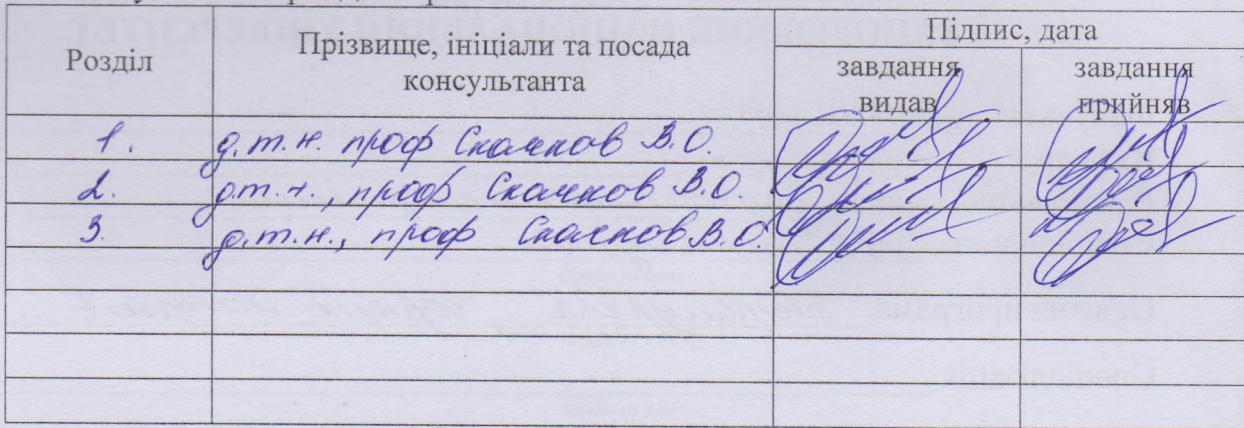 Розділ Прізвище, ініціали та посада консультанта Підпис, дата
завдання видав завдання прийняв
1. д.т.н. проф Скачков В.О.
2. д.т.н., проф Скачков В.О.
3. д.т.н., проф Скачков В.О.